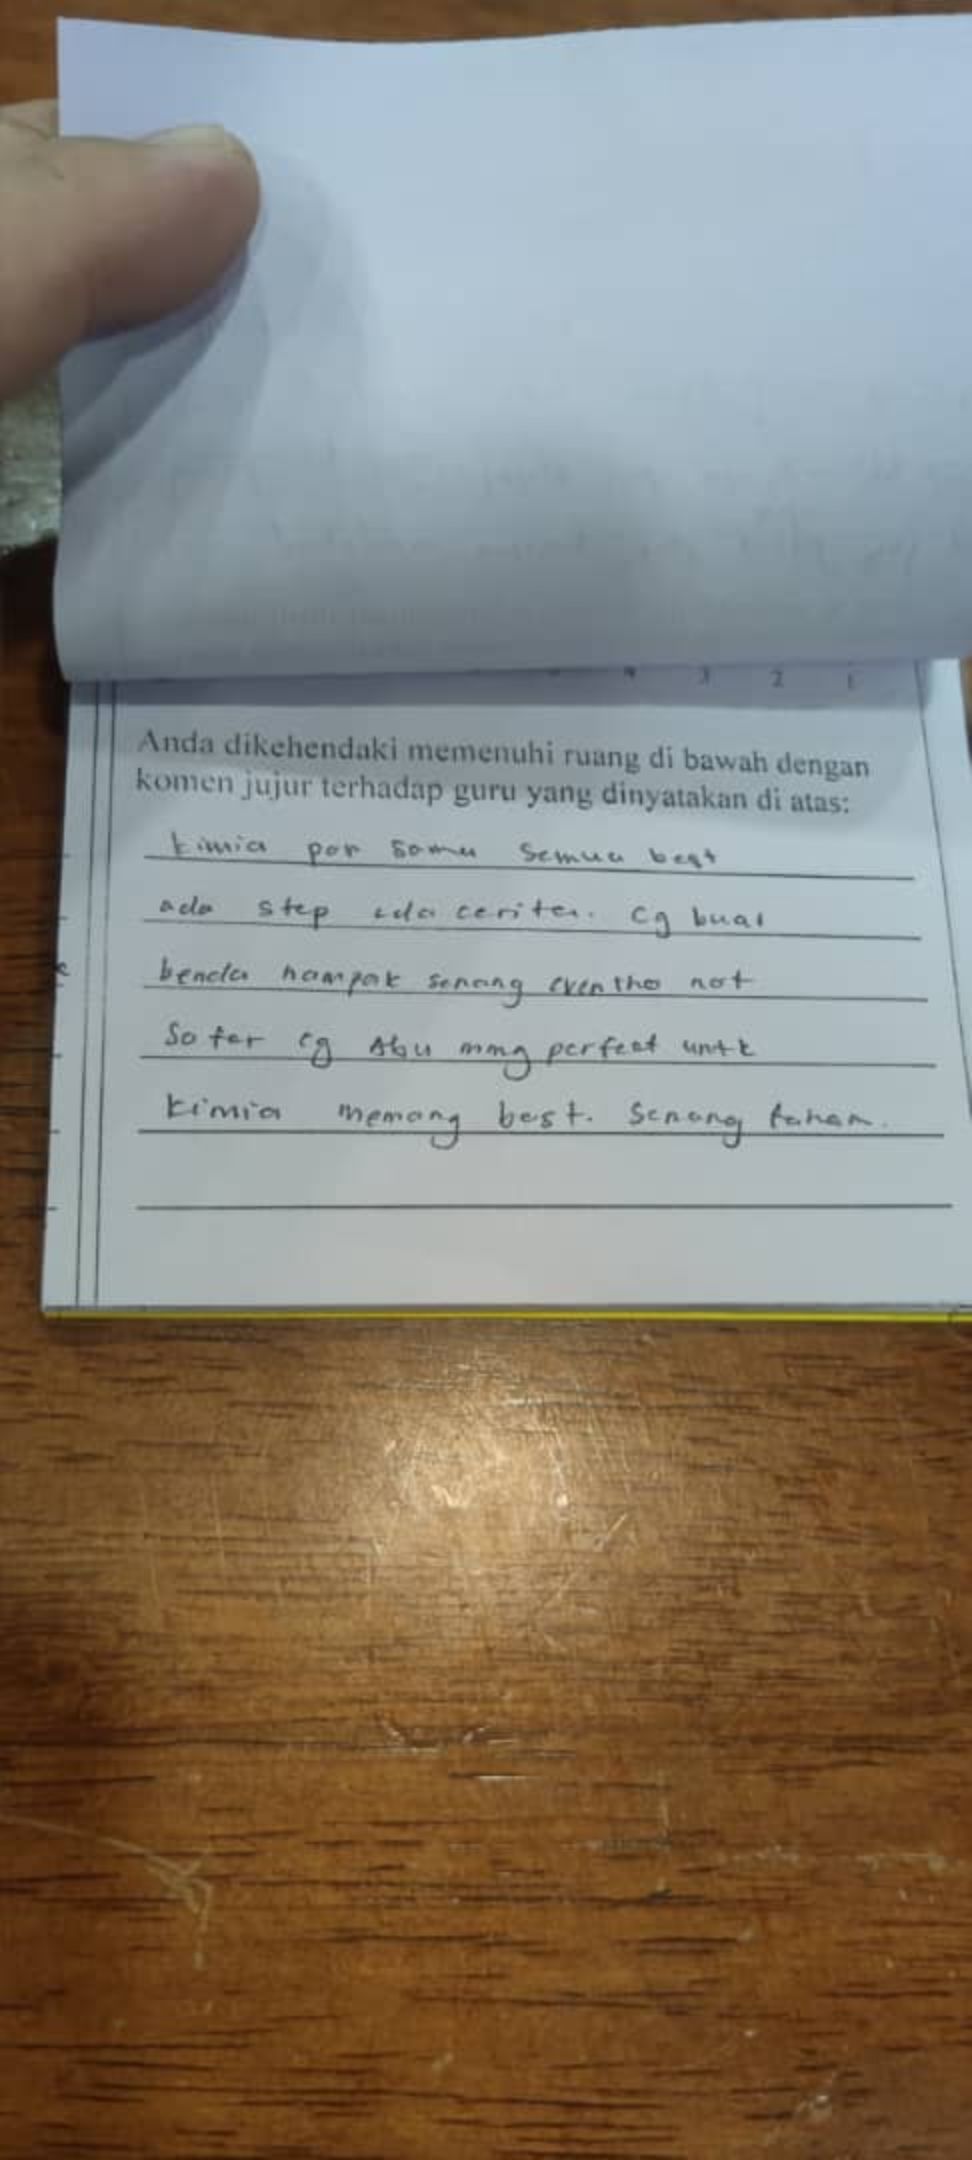 4 3 2 1
Anda dikehendaki memenuhi ruang di bawah dengan
komen jujur terhadap guru yang dinyatakan di atas:
kimia pon sama semua best
ada step ada cerita. Cg buat
benda nampak senang eventho not
So far cg Abu mmg perfect untk
kimia memang best. Senang faham.